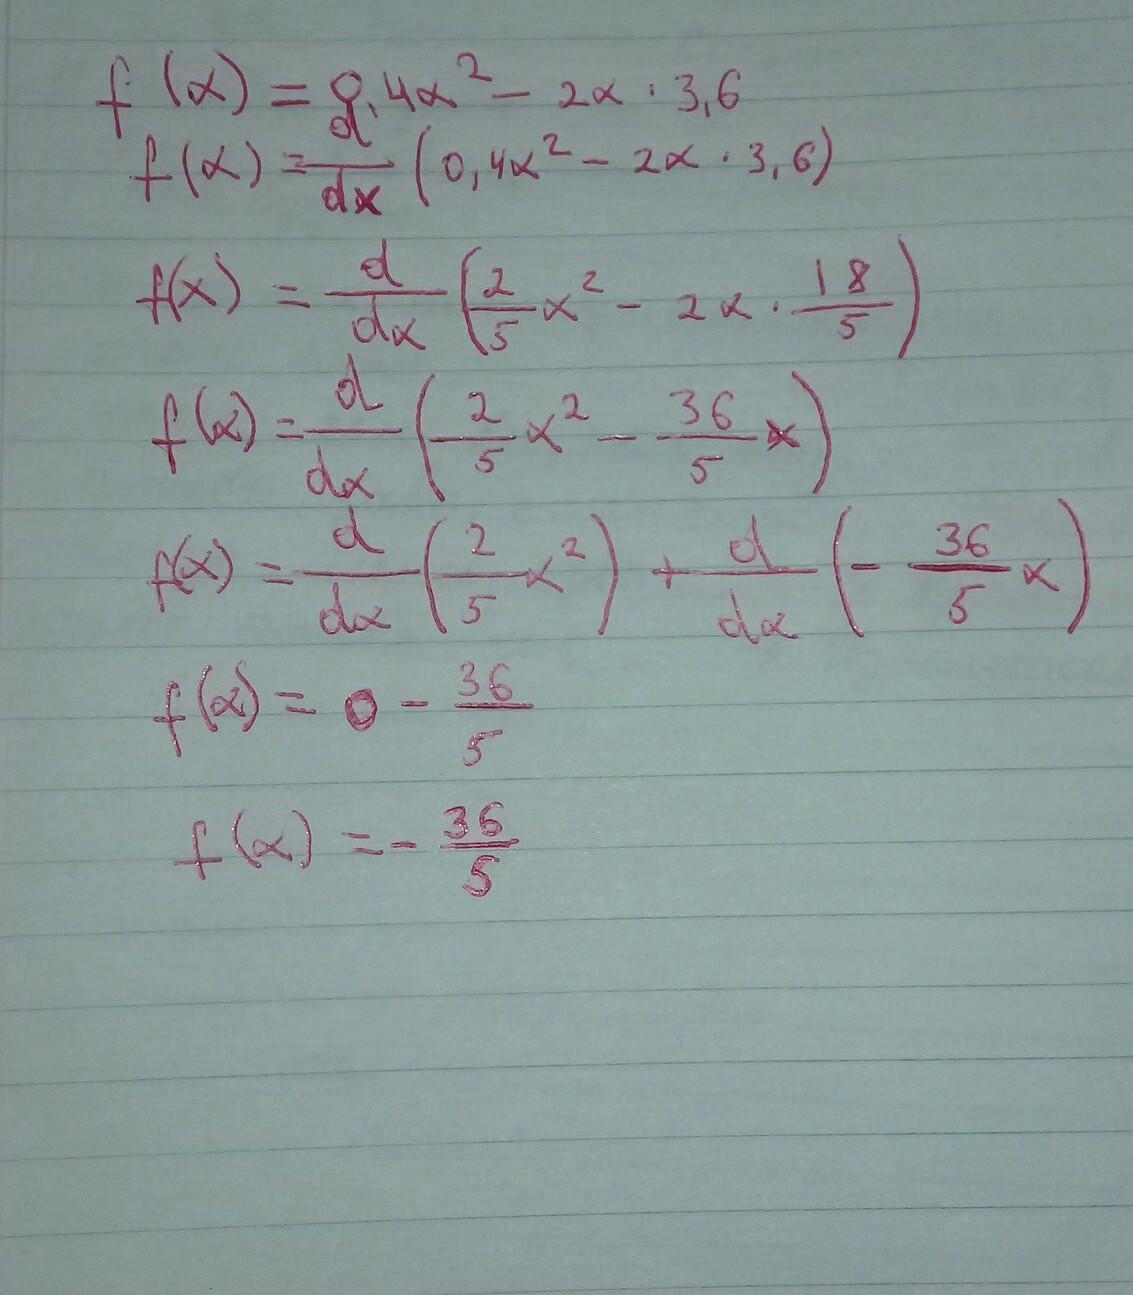 f(x) = 0,4x² - 2x · 3,6
f(x) = d/dx (0,4x² - 2x · 3,6)
f(x) = d/dx (2/5 x² - 2x · 18/5)
f(x) = d/dx (2/5 x² - 36/5 x)
f(x) = d/dx (2/5 x²) + d/dx (- 36/5 x)
f(x) = 0 - 36/5
f(x) = - 36/5